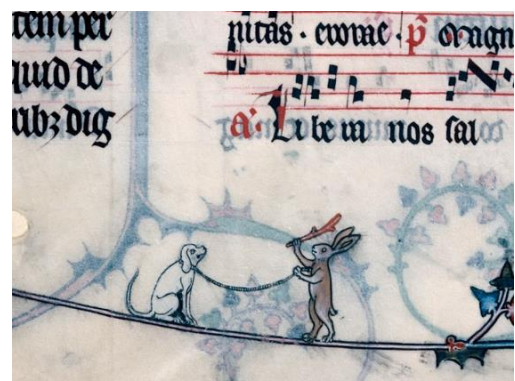 tem per
quid de
dig
nitas · euouae · p̄ magn
a· Libe ra nos sal